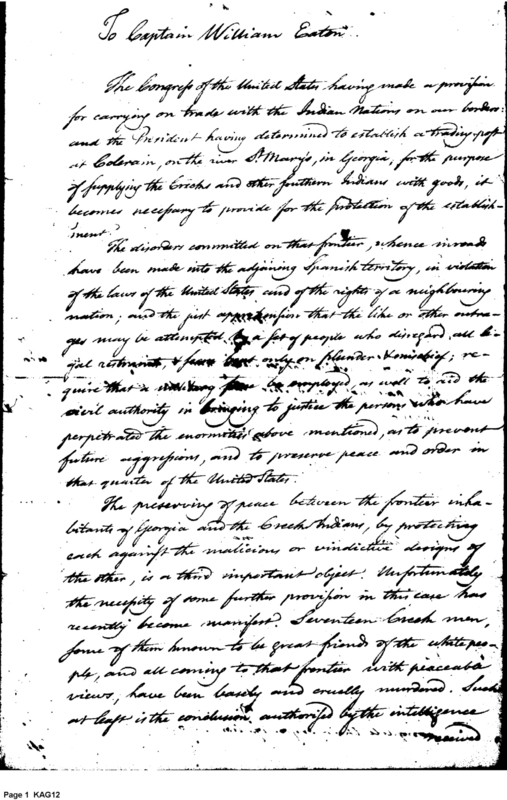 To Captain William Eaton.
The Congress of the United States having made a provision
for carrying on trade with the Indian Nations on our borders:
and the President having determined to establish a trading-post
at Colerain, on the river St Mary's, in Georgia, for the purpose
of supplying the Creeks and other southern Indians with goods, it
becomes necessary to provide for the protection of the establish-
ment.
The disorders committed on that frontier, whence inroads
have been made into the adjoining Spanish territory, in violation
of the laws of the United States and of the rights of a neighbouring
nation; and the just apprehension that the like or other outra-
ges may be attempted by a set of people who disregard all le-
gal restraints, & bent only on plunder & mischief; re-
quire that a military force be employed, as well to aid the
civil authority in bringing to justice the persons who have
perpetrated the enormities above mentioned, as to prevent
future aggressions, and to preserve peace and order in
that quarter of the United States.
The preserving of peace between the frontier inha-
bitants of Georgia and the Creek Indians, by protecting
each against the malicious or vindictive designs of
the other, is a third important object. Unfortunately
the necessity of some further provision in this case has
recently become manifest. Seventeen Creek men,
some of them known to be great friends of the white peo-
ple, and all coming to that frontier with peaceable
views, have been basely and cruelly murdered. Such
at least is the conclusion authorised by the intelligence
received
Page 1 KAG12